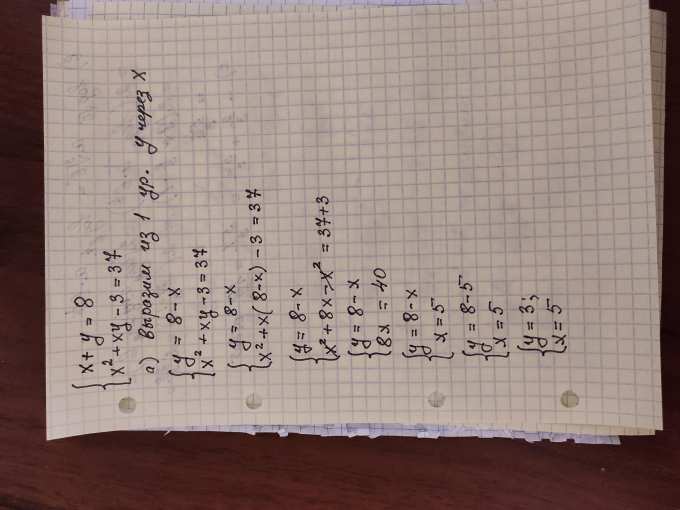 x + y = 8
x² + xy - 3 = 37
а) Выразим из 1 ур. y через x
y = 8 - x
x² + xy - 3 = 37
y = 8 - x
x² + x(8 - x) - 3 = 37
y = 8 - x
x² + 8x - x² = 37 + 3
y = 8 - x
8x = 40
y = 8 - x
x = 5
y = 8 - 5
x = 5
y = 3;
x = 5